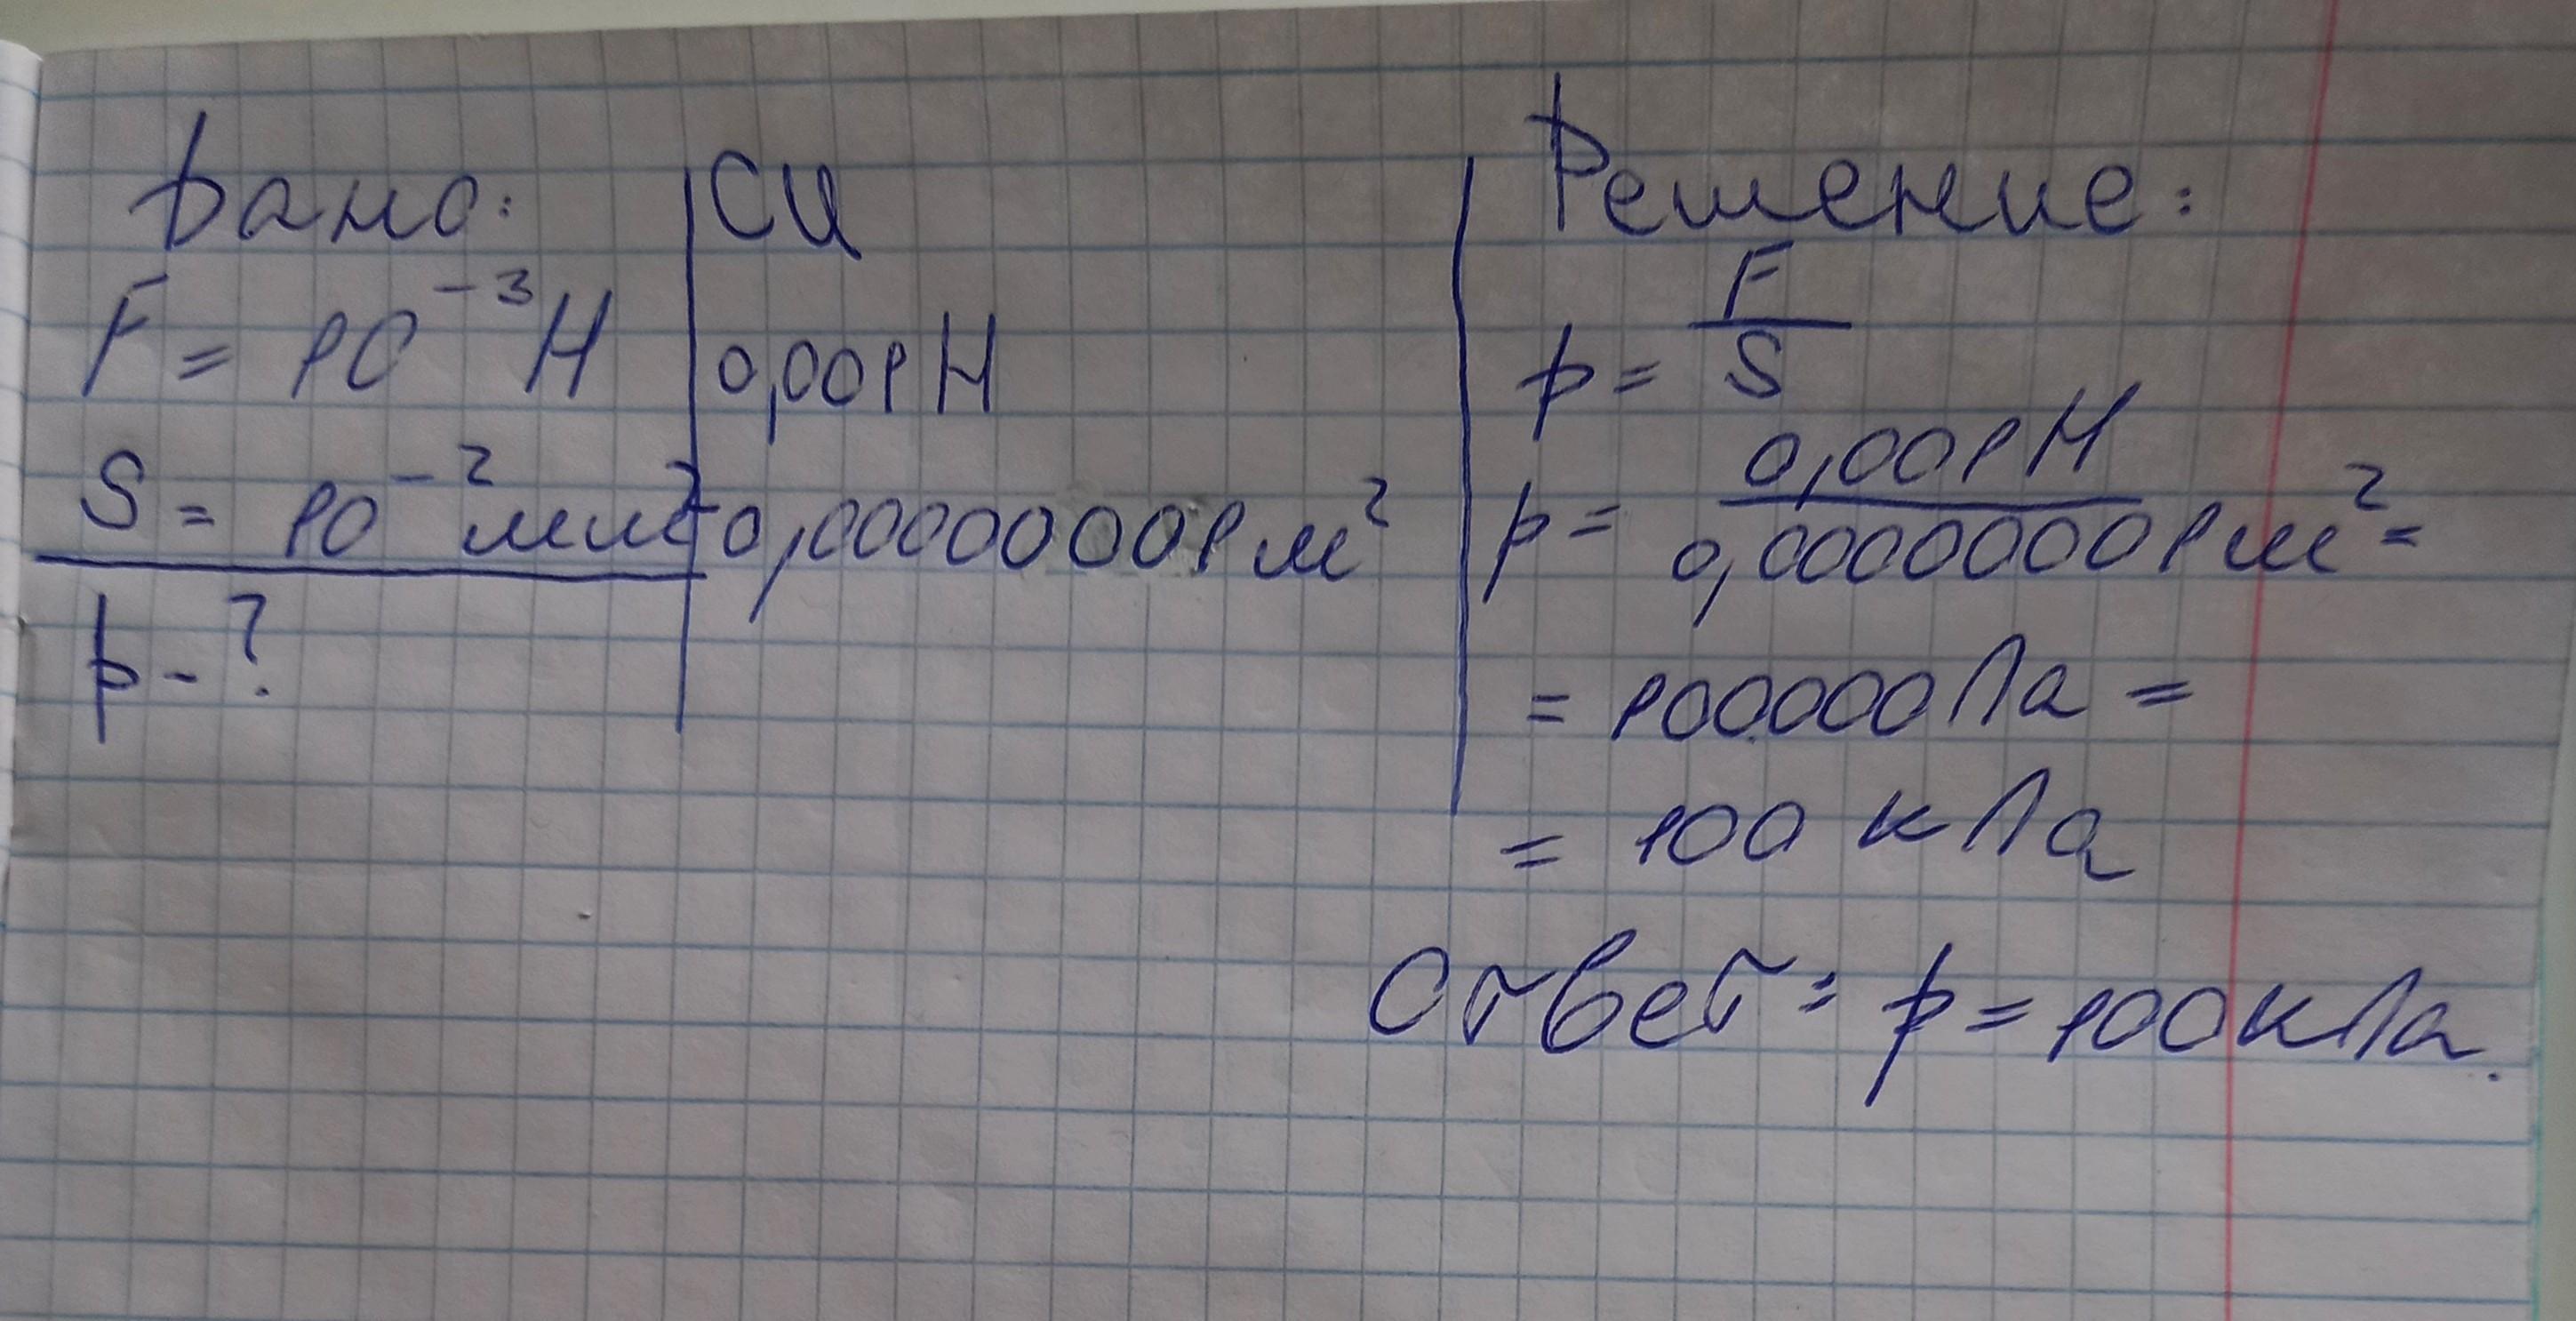 Дано:
F = 10⁻³ Н
S = 10⁻² мм²
p - ?
СИ
0,001 Н
0,00000001 м²
Решение:
p = F/S
p = 0,001 Н / 0,00000001 м² =
= 100000 Па =
= 100 кПа
Ответ: p = 100 кПа.